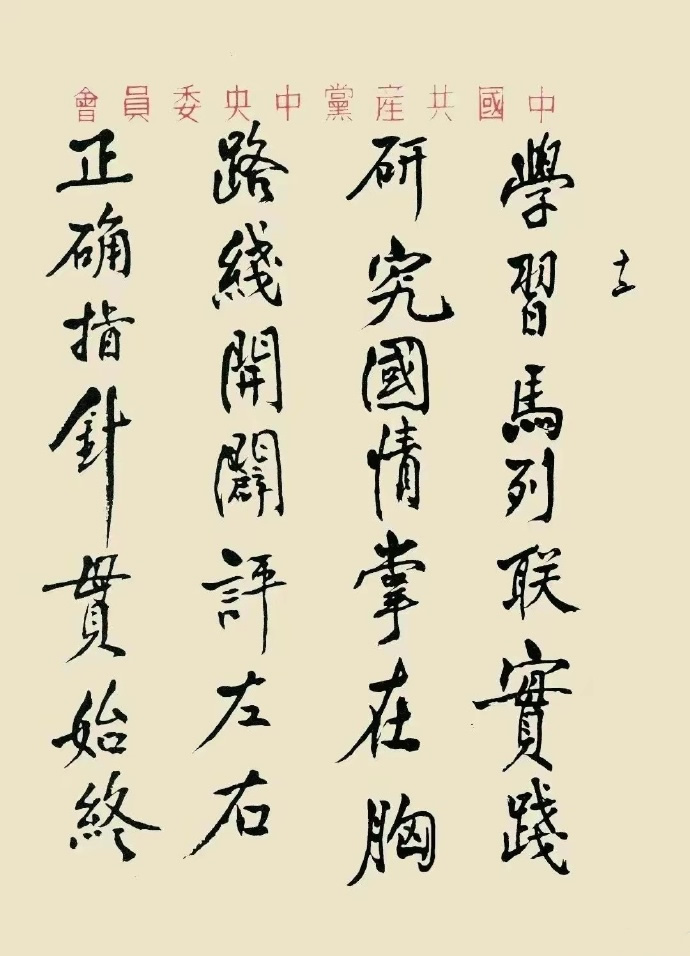 中國共産黨中央委員會
十五
學習馬列联實踐
研究國情掌在胸
路綫開闢評左右
正确指針貫始終